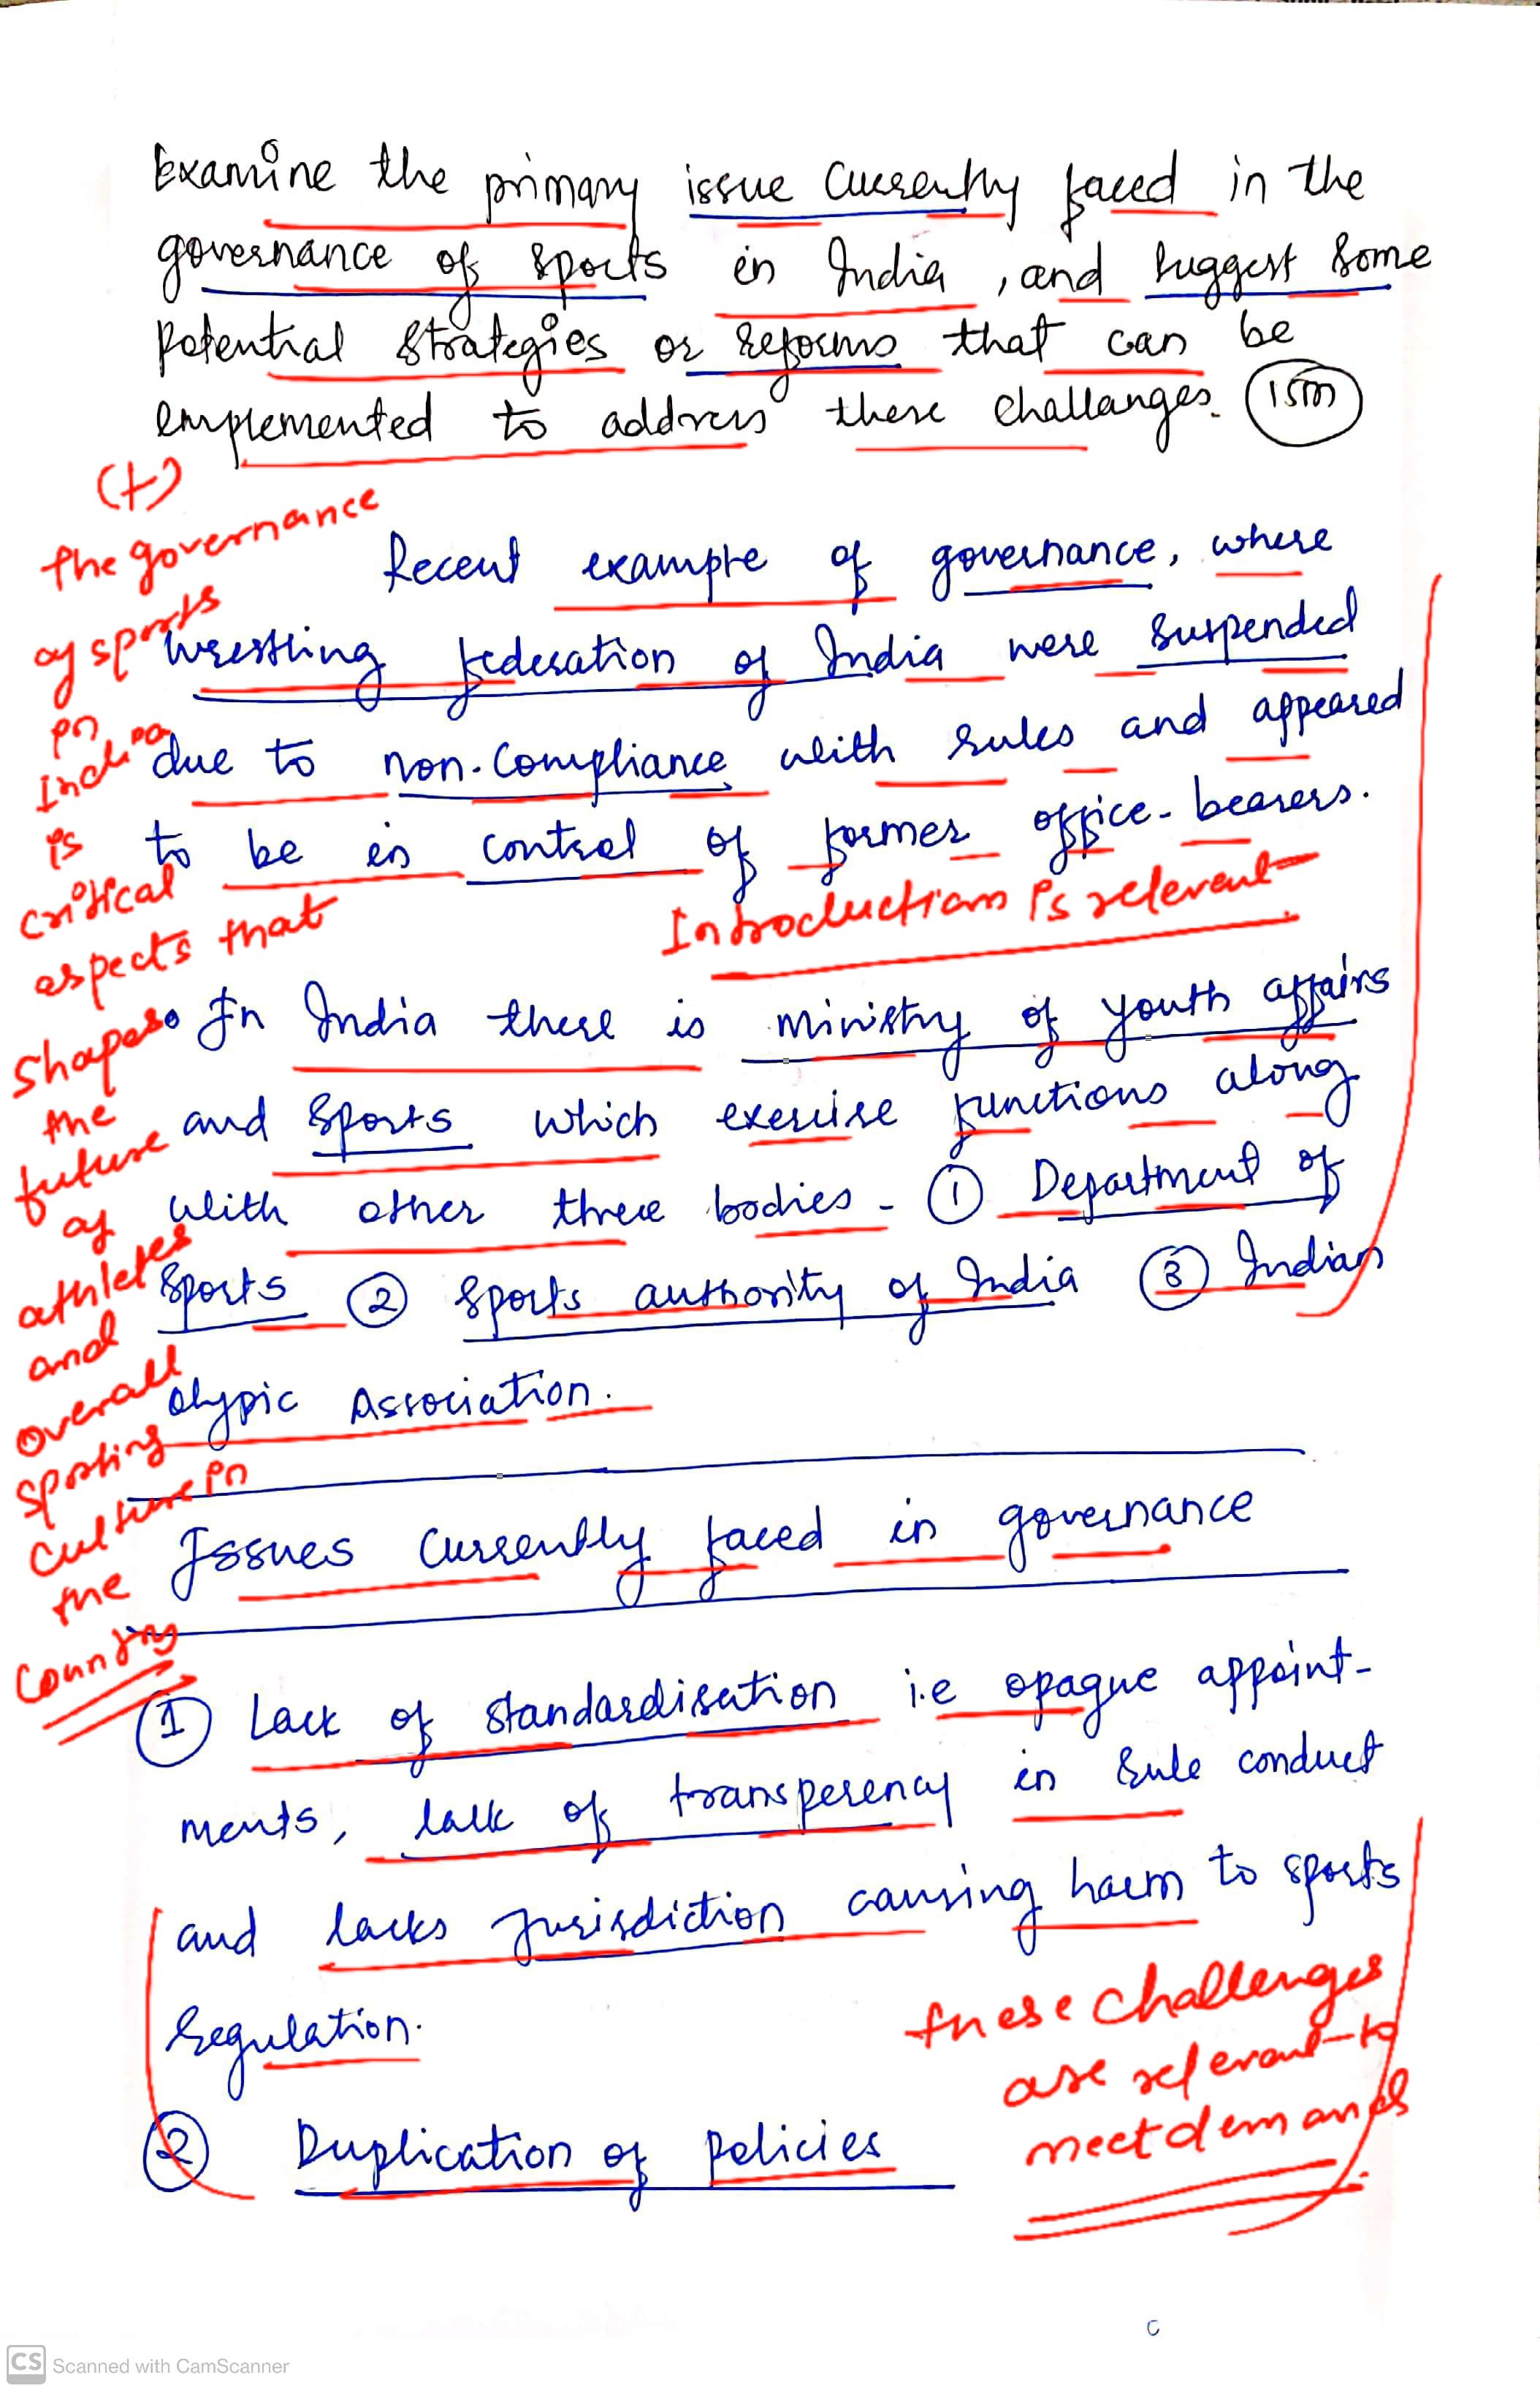 Examine the primary issue currently faced in the
governance of sports in India, and suggest some
Potential strategies or reforms that can be
emplemented to address these challanges. 15m
(+)
the governance
of sports
in
India
is
critical
aspects that
shapes
the
future
of
athletes
and
overall
sporting
culture in
the
country
Recent example of governance, where
wrestling federation of India were suspended
due to non-compliance with rules and appeared
to be in control of former office-bearers.
Introduction is relevant
In India there is ministry of youth affairs
and sports which exercise functions along
with other three bodies - ① Department of
sports ② sports authority of India ③ Indian
olypic Association.
Issues currently faced in governance
① Lack of standardisation i.e opaque appoint-
ments, lack of transperency in rule conduct
and lacks jurisdiction causing harm to sports
regulation.
these challenges
are relevant to
meet demands
② Duplication of policies
CS Scanned with CamScanner